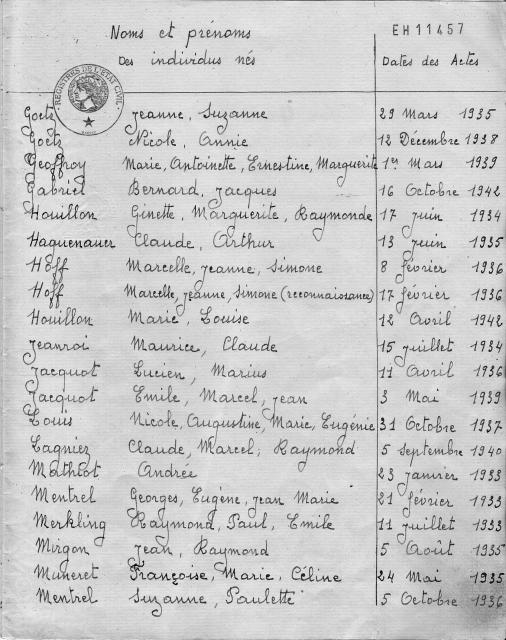 Noms et prénoms EH11457
Des individus nés Dates des Actes
REGISTRES DE L'ETAT CIVIL
Goetz Jeanne, Suzanne 29 Mars 1935
Goetz Nicole, Annie 12 Décembre 1938
Geoffroy Marie, Antoinette, Ernestine, Marguerite 1er Mars 1939
Gabriel Bernard, Jacques 16 Octobre 1942
Houillon Ginette, Marguerite, Raymonde 17 juin 1934
Haguenauer Claude, Arthur 13 juin 1935
Hoff Marcelle, Jeanne, Simone 8 février 1936
Hoff Marcelle, Jeanne, Simone (reconnaissance) 17 février 1936
Houillon Marie, Louise 12 Avril 1942
Jeanroi Maurice, Claude 15 juillet 1934
Jacquot Lucien, Marius 11 Avril 1936
Jacquot Emile, Marcel, Jean 3 Mai 1939
Louis Nicole, Augustine, Marie, Eugénie 31 Octobre 1937
Lagniez Claude, Marcel, Raymond 5 Septembre 1940
Mathiot Andrée 23 janvier 1933
Mentrel Georges, Eugène, Jean Marie 21 février 1933
Merkling Raymond, Paul, Emile 11 juillet 1933
Mirgon Jean, Raymond 5 Août 1935
Muneret Françoise, Marie, Céline 24 Mai 1935
Mentrel Suzanne, Paulette 5 Octobre 1936